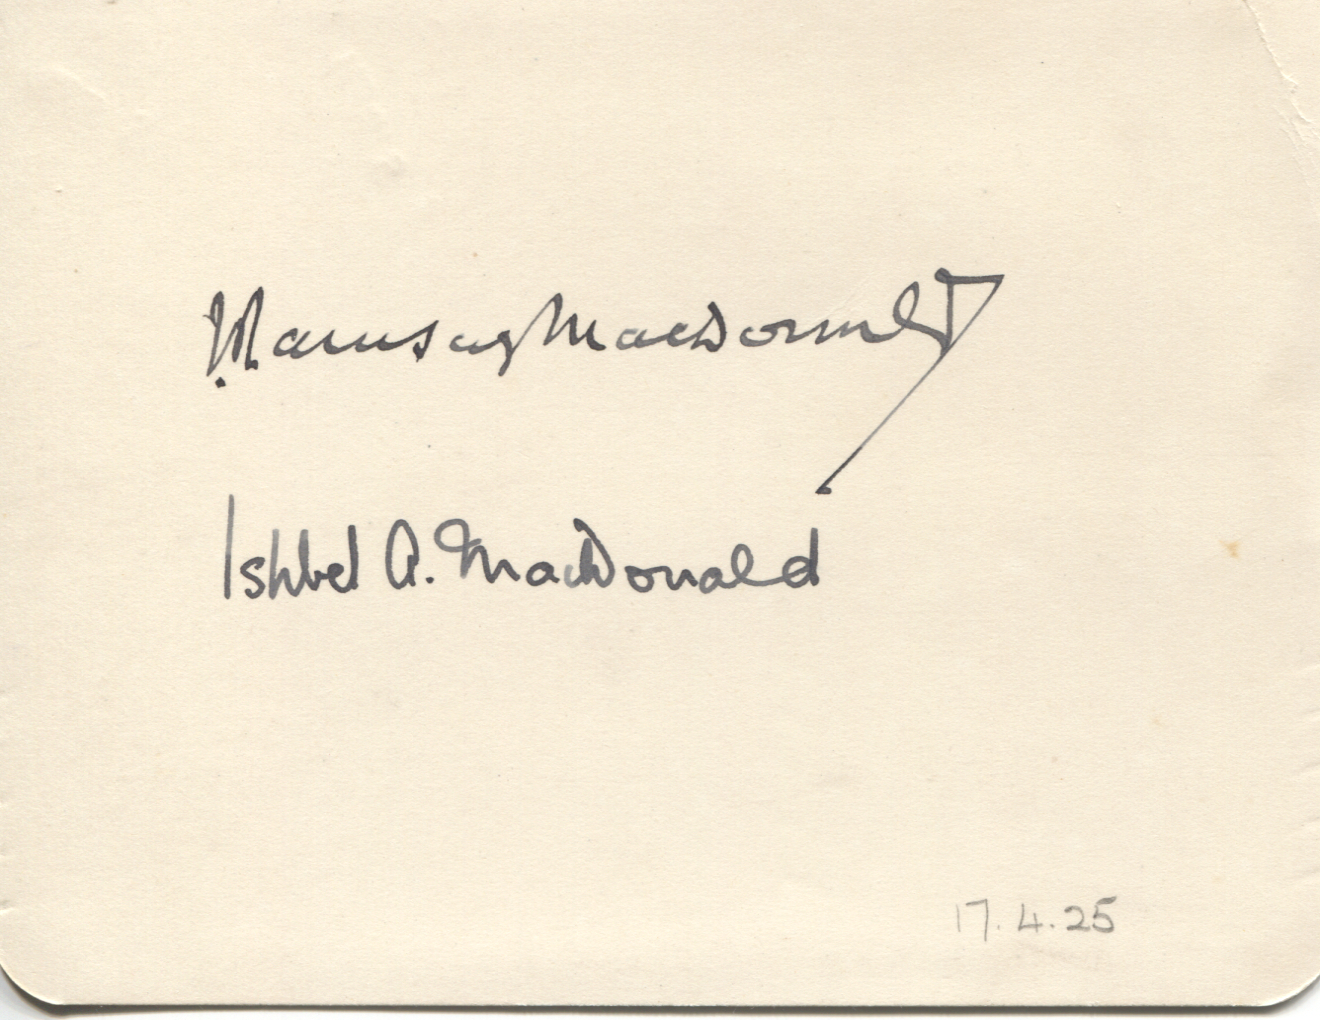 J. Ramsay MacDonald
Ishbel A. MacDonald
17.4.25